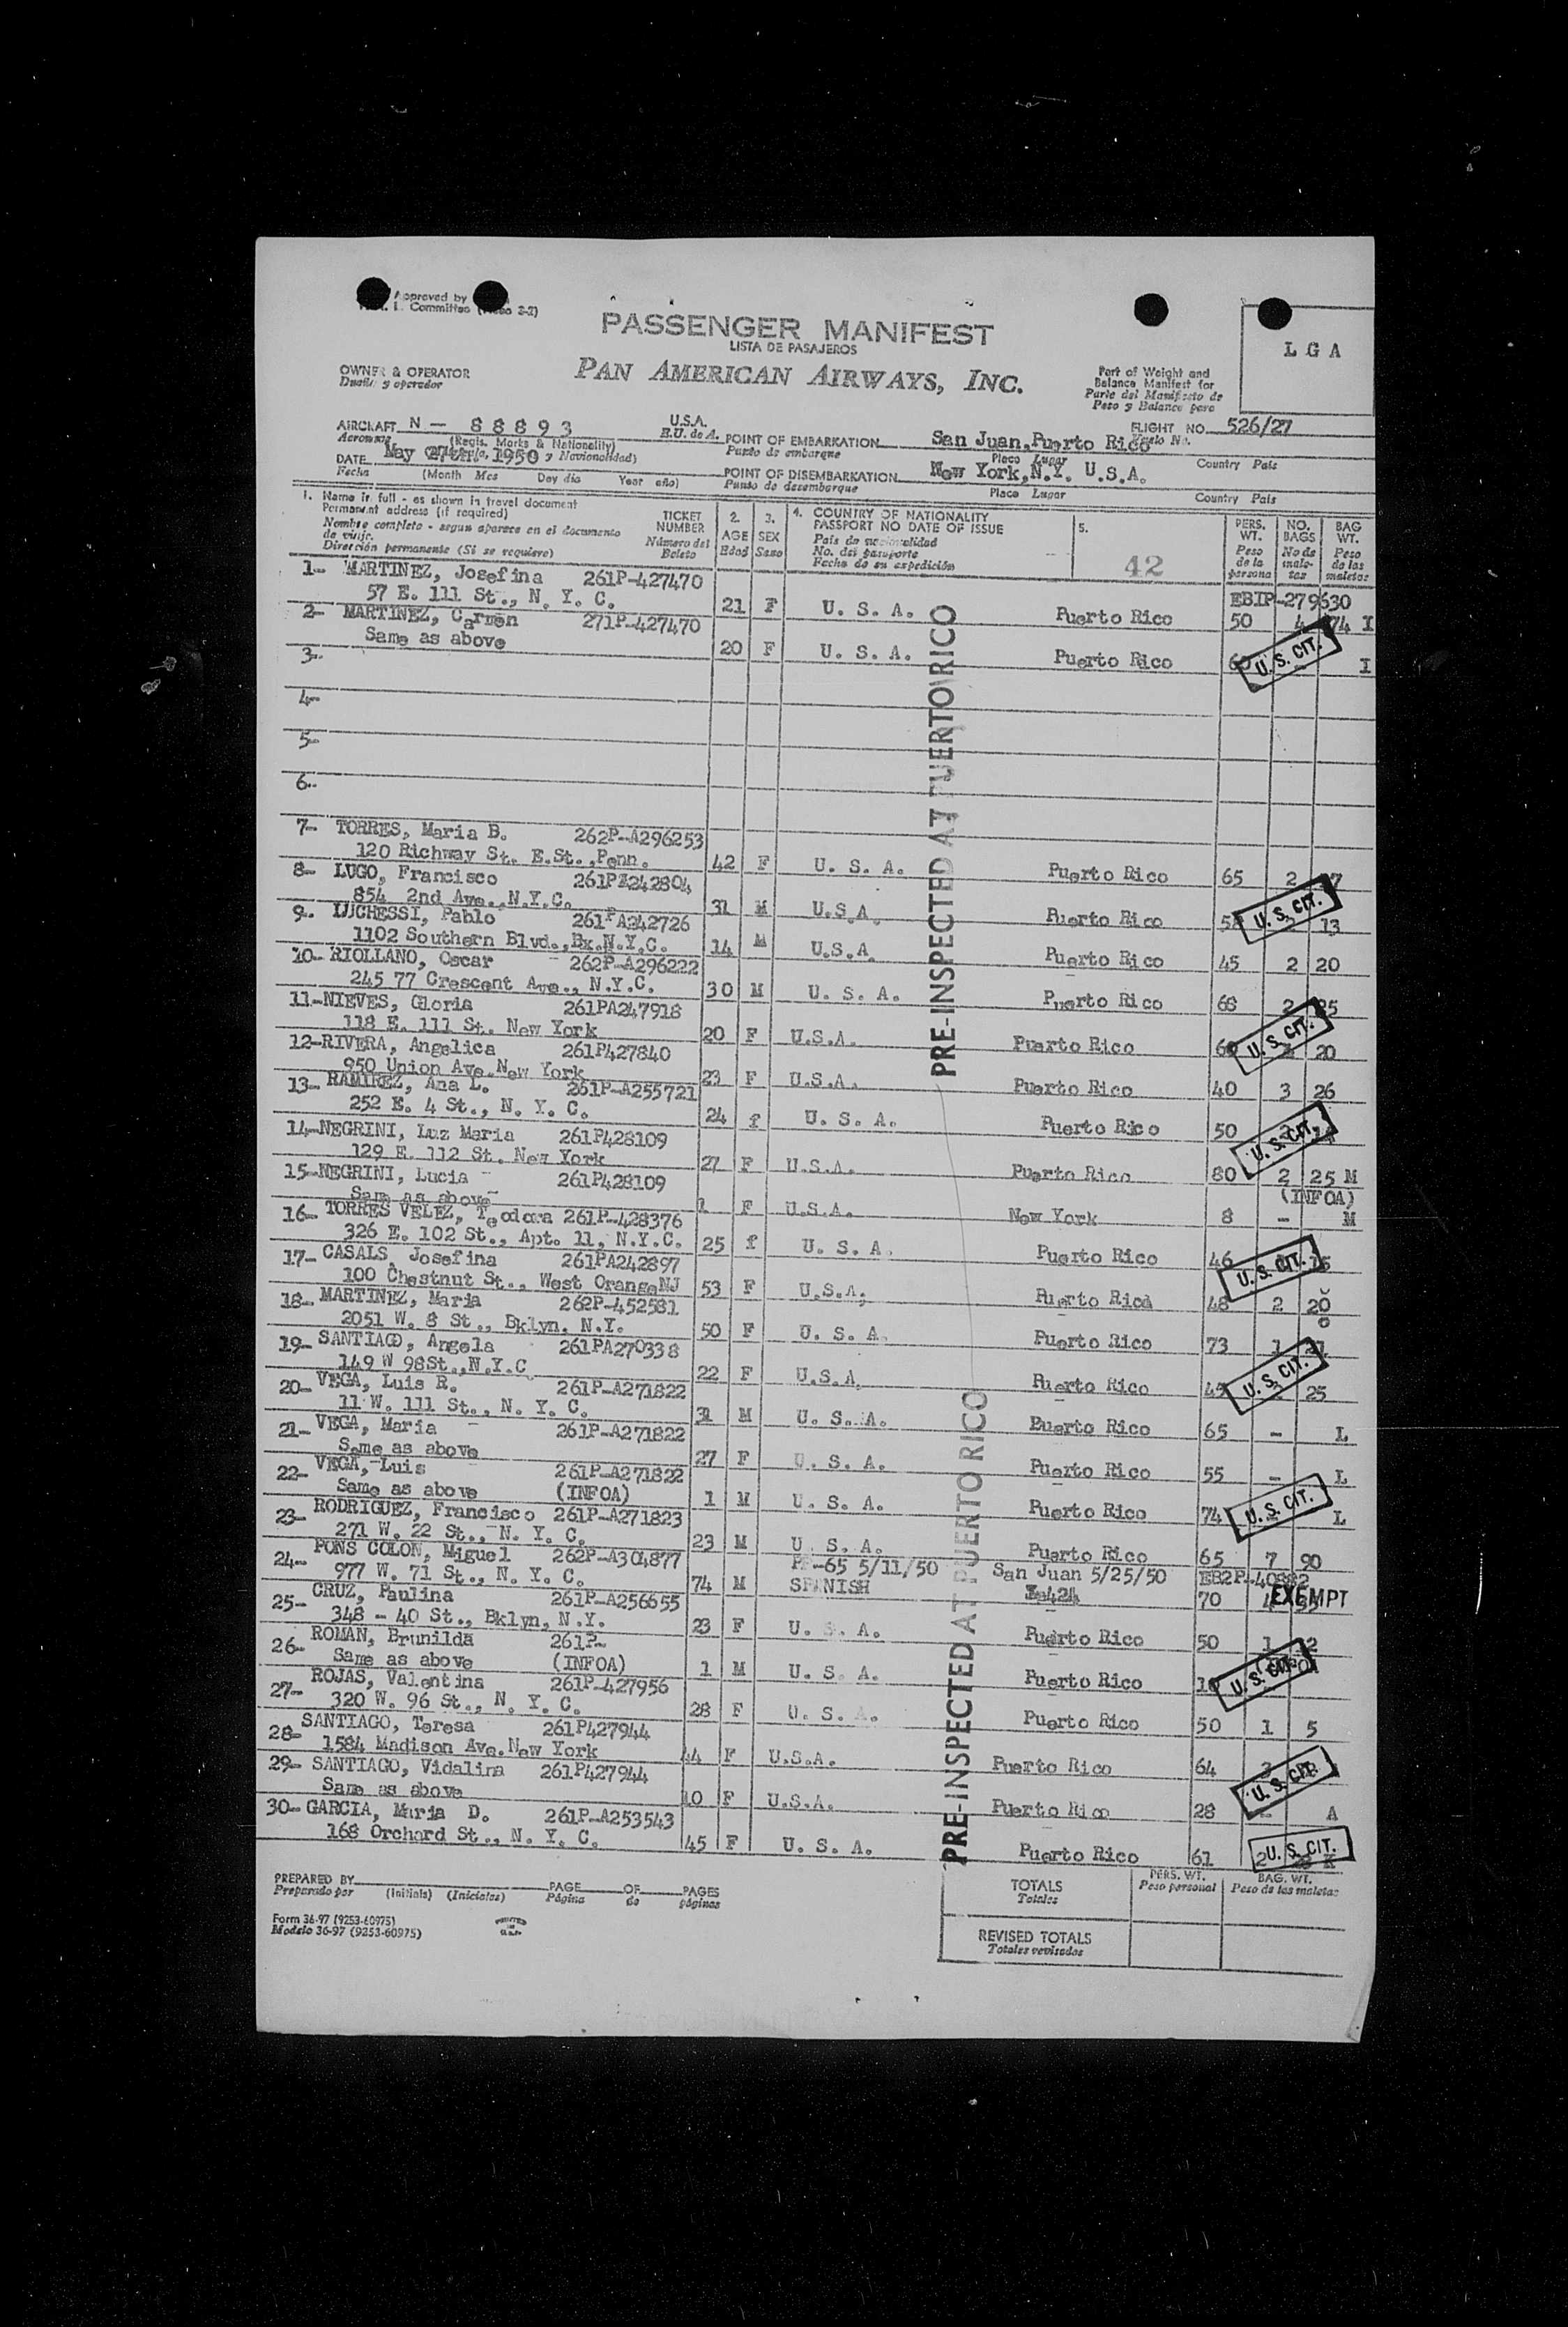 Approved by
Committee
PASSENGER MANIFEST
LISTA DE PASAJEROS
L G A
OWNER & OPERATOR
Dueño y operador
PAN AMERICAN AIRWAYS, INC.
Part of Weight and
Balance Manifest for
Parte del Manifiesto de
Peso y Balance para
AIRCRAFT N - 88893 U.S.A. E.U. de A.
Aeronave (Regis. Marks & Nationality)
POINT OF EMBARKATION San Juan, Puerto Rico
Punto de embarque Place Lugar Country Pais
FLIGHT NO. 526/27
Vuelo No.
DATE May 27th, 1950
Fecha (Month Mes Day dia Year año)
POINT OF DISEMBARKATION New York, N.Y. U.S.A.
Punto de desembarque Place Lugar Country Pais
1. Name in full - as shown in travel document
Permanent address (if required)
Nombre completo - segun aparece en el documento
de viaje.
Dirección permanente (Si se requiere)
TICKET NUMBER Número del Boleto
2. AGE Edad
3. SEX Sexo
4. COUNTRY OF NATIONALITY
PASSPORT NO DATE OF ISSUE
Pais de nacionalidad
No. del pasaporte
Fecha de su expedición
5.
42
PERS. WT. Peso de la persona
NO. BAGS No de maletas
BAG WT. Peso de las maletas
1- MARTINEZ, Josefina 261P-427470 EBIP-279630
57 E. 111 St., N. Y. C. 21 F U. S. A. Puerto Rico 50 4 74 I
2- MARTINEZ, Carmen 271P-427470
Same as above 20 F U. S. A. Puerto Rico I
U. S. CIT.
3-
4-
5-
6-
7- TORRES, Maria B. 262P-A296253
120 Richway St. E.St.,Penn. 42 F U. S. A. Puerto Rico 65 2
8- LUGO, Francisco 261P 242804
854 2nd Ave., N.Y.C. 31 M U.S.A. Puerto Rico 13
U. S. CIT.
9- LUCHESSI, Pablo 261P A242726
1102 Southern Blvd.,Bx.N.Y.C. 14 M U.S.A. Puerto Rico 45 2 20
10- RIOLLANO, Oscar 262P-A296222
245 77 Crescent Ave., N.Y.C. 30 M U. S. A. Puerto Rico 68 2
11-NIEVES, Gloria 261PA247918
118 E. 111 St. New York 20 F U.S.A. Puerto Rico 20
U. S. CIT.
12-RIVERA, Angelica 261P427840
950 Union Ave. New York 23 F U.S.A. Puerto Rico 40 3 26
13- RAMIREZ, Ana L. 261P-A255721
252 E. 4 St., N. Y. C. 24 f U. S. A. Puerto Rico 50
U. S. CIT.
14-NEGRINI, Luz Maria 261P428109
129 E. 112 St. New York 27 F U.S.A. Puerto Rico 80 2 25 M
15-NEGRINI, Lucia 261P428109 (INFOA)
Same as above 1 F U.S.A. New York 8 - M
16- TORRES VELEZ, Teodora 261P-428376
326 E. 102 St., Apt. 11, N.Y.C. 25 f U. S. A. Puerto Rico 46
U. S. CIT.
17- CASALS, Josefina 261PA242897
100 Chestnut St., West OrangeNJ 53 F U.S.A. Puerto Rico 48 2 20
18- MARTINEZ, Maria 262P-452581
2051 W. 8 St., Bklyn. N.Y. 50 F U. S. A. Puerto Rico 73 1
19- SANTIAGO, Angela 261PA270338
149 W 98St.,N.Y.C 22 F U.S.A. Puerto Rico 25
U. S. CIT.
20- VEGA, Luis R. 261P-A271822
11 W. 111 St., N. Y. C. 31 M U. S. A. Puerto Rico 65 - L
21- VEGA, Maria 261P-A271822
Same as above 27 F U. S. A. Puerto Rico 55 - L
22- VEGA, Luis 261P-A271822
Same as above (INFOA) 1 M U. S. A. Puerto Rico 74 L
U. S. CIT.
23- RODRIGUEZ, Francisco 261P-A271823
271 W. 22 St., N. Y. C. 23 M U. S. A. Puerto Rico 65 7 90
24- PONS COLON, Miguel 262P-A304877 PP-65 5/11/50 San Juan 5/25/50
977 W. 71 St., N. Y. C. 74 M SPANISH 70 EXEMPT
25- CRUZ, Paulina 261P-A256655
348 - 40 St., Bklyn, N.Y. 23 F U. S. A. Puerto Rico 50 1
26- ROMAN, Brunilda 261P-
Same as above (INFOA) 1 M U. S. A. Puerto Rico
U. S. CIT.
27- ROJAS, Valentina 261P-427956
320 W. 96 St., N. Y. C. 28 F U. S. A. Puerto Rico 50 1 5
28- SANTIAGO, Teresa 261P427944
1584 Madison Ave. New York 44 F U.S.A. Puerto Rico 64
29- SANTIAGO, Vidalina 261P427944
Same as above 10 F U.S.A. Puerto Rico 28 - A
U. S. CIT.
30- GARCIA, Maria D. 261P-A253543
168 Orchard St., N. Y. C. 45 F U. S. A. Puerto Rico 61 2
U. S. CIT.
PRE-INSPECTED AT PUERTO RICO
PRE-INSPECTED AT PUERTO RICO
PREPARED BY PAGE OF PAGES
Preparado por (Initials) (Iniciales) Página de páginas
TOTALS
Totales
PERS. WT.
Peso personal
BAG. WT.
Peso de las maletas
REVISED TOTALS
Totales revisados
Form 36-97 (9253-60975)
Modelo 36-97 (9253-60975)
PRINTED IN U.S.A.